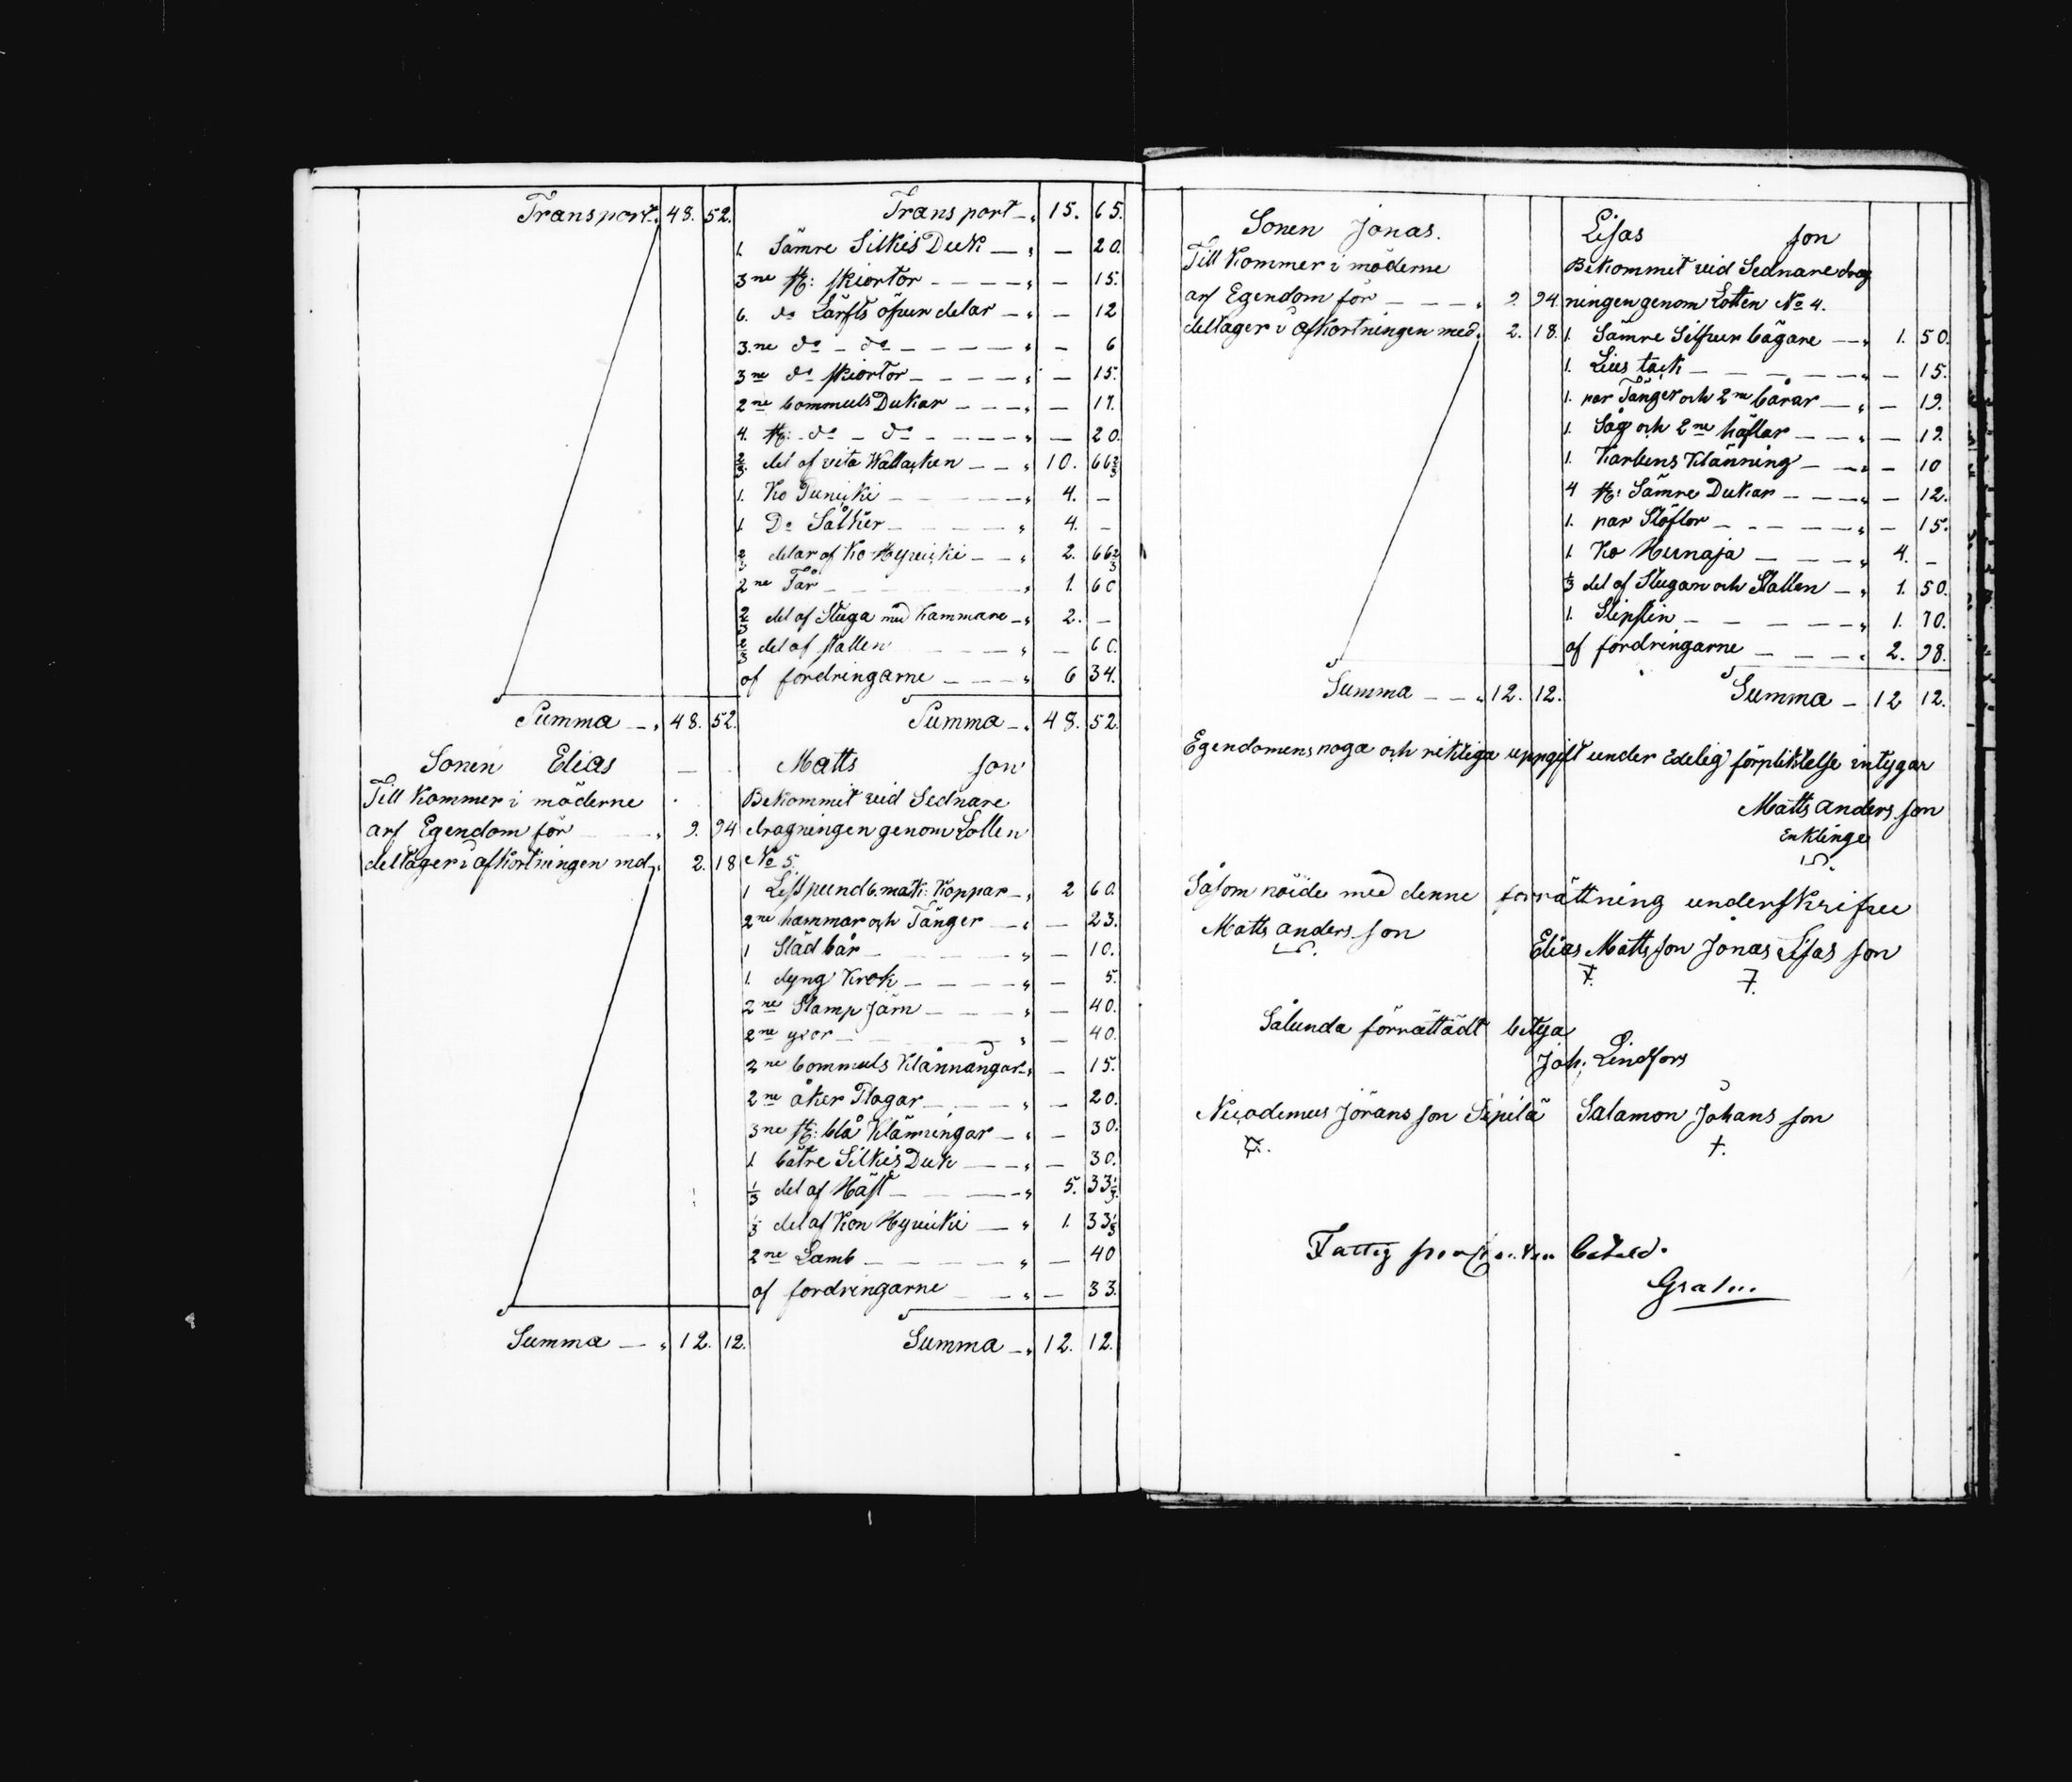 Transport 48. 52.
Transport 15. 65.
1. Sämre Silkis Duk — 20.
3ne st: skiortor — 15.
6. do Lärfts öfver delar — 12
3.ne do - do — 6
3ne do skiortor — 15.
2ne bommuls Dukar — 17.
4. st: do - do — 20.
2/3. del af vita Wallacken 10. 66 2/3
1. Ko Punicki 4. —
1. Do Såther 4. —
2/3 delar af Ko Hyvicki 2. 66 2/3
2ne Får 1. 60
2/3 del af Stuga med Kammare 2. —
2/3 del af stallen — 60.
af fordringarne 6 34.
Summa 48. 52.
Summa 48. 52.
Sonen Elias Matts son
Till Kommer i möderne
arf Egendom för 9. 94
deltager i afkortningen med 2. 18
Bekommit vid Sednare
dragningen genom Lotten
No 5.
1 Lisspund 6. mark: Koppar 2 60.
2ne hammar och Tänger — 23.
1 Städ bår — 10.
1. dyng Krok — 5.
2ne Stamp Järn — 40.
2ne yxor — 40.
2ne bommuls Klännängar — 15.
2ne åker Plogar — 20.
3ne st: blå Klänningar — 30.
1. bätre Silkis Duk — 30.
1/3 del af Häst 5. 33 1/3.
1/3 del af Kon Hyvicki 1. 33 1/3
2ne Lamb — 40
af fordringarne — 33.
Summa 12. 12.
Summa 12. 12.
Sonen Jonas. Lisas son
Till Kommer i möderne
arf Egendom för 9. 94.
deltager i afkortningen med 2. 18.
Bekommit vid Sednare drag
ningen genom Lotten No 4.
1. Sämre Silfver bägare 1. 50.
1. Lius tack — 15.
1. par Tänger och 2ne bårar — 19.
1. Såg och 2ne höflar — 19.
1. Karlens Klänning — 10
4 st: Sämre Dukar — 12.
1. par Stöflor — 15.
1. Ko Hunaja 4. —
1/3 del af Stugan och Stallen 1. 50.
1. Slipstin 1. 70.
af fordringarne 2. 98.
Summa 12. 12.
Summa 12 12.
Egendomens noga och riktiga uppgift under Edelig förpliktelse intygar
Matts anders son
Enklinge
Såsom nöide med denne förrättning underskrifve
Matts anders son
Elias Matts son Jonas Lisas son
Sålunda förrättädt betyga
Joh: Lindfors
Nicodemus Jörans son Sipilä Salamon Johans son
Fattig betald.